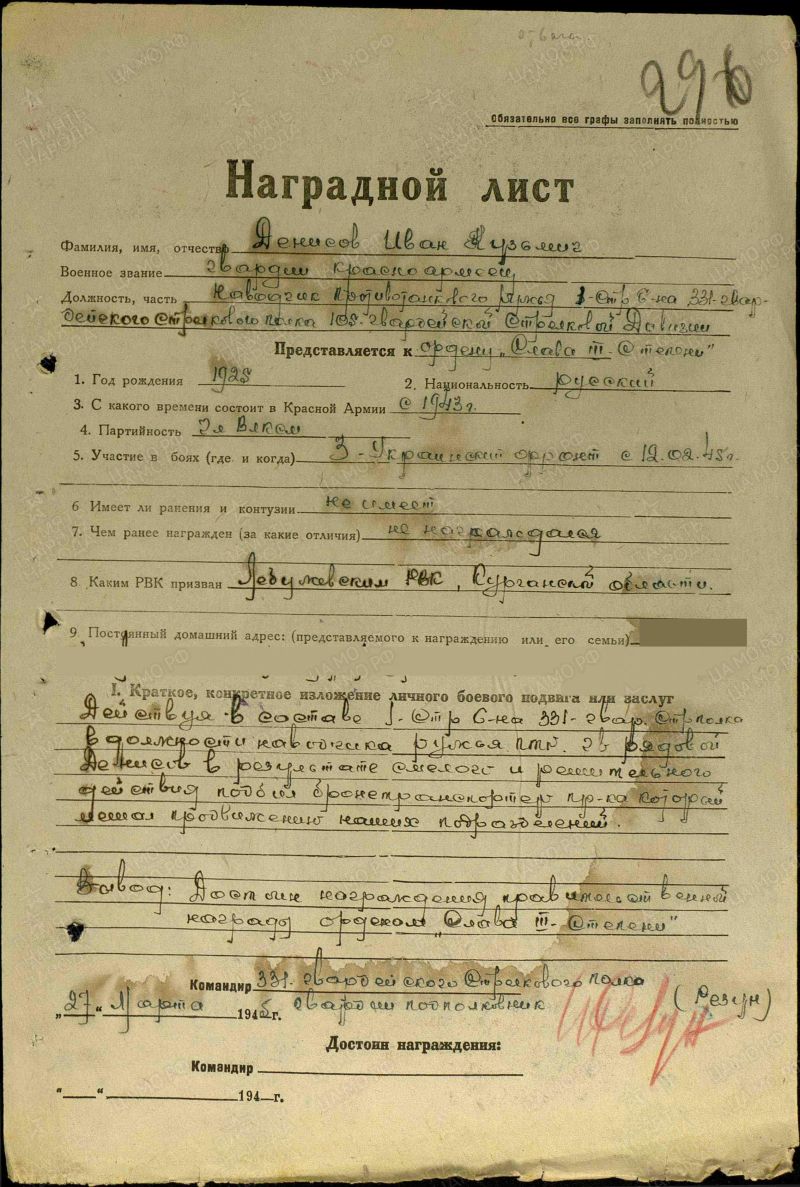 отвага
296
Обязательно все графы заполнять полностью
Наградной лист
Фамилия, имя, отчество Денисов Иван Кузьмич
Военное звание гвардии красноармеец
Должность, часть Наводчик Противотанкового ружья 1-Стр Б-на 331-гвар-
дейского Стрелкового полка 105-гвардейской Стрелковой Дивизии
Представляется к ордену „Слава III-Степени"
1. Год рождения 1925 2. Национальность русский
3. С какого времени состоит в Красной Армии с 1943 г.
4. Партийность Чл ВЛКСМ
5. Участие в боях (где и когда) 3-Украинский фронт с 12.02.45 г.
6 Имеет ли ранения и контузии не имеет
7. Чем ранее награжден (за какие отличия) не награждался
8. Каким РВК призван РВК, Курганской области.
9. Постоянный домашний адрес: (представляемого к награждению или его семьи)
I. Краткое, конкретное изложение личного боевого подвига или заслуг
Действуя в составе 1-Стр Б-на 331-гвар. Стр полка
в должности наводчика ружья ПТР. гв рядовой
Денисов в результате смелого и решительного
действия подбил бронетранспортер пр-ка который
мешал продвижению наших подразделений.
Вывод: Достоин награждения правительственной
награды орденом „Слава III-Степени"
Командир 331-гвардейского Стрелкового полка
„27" Марта 1945 г. гвардии подполковник (Резун)
Достоин награждения:
Командир
„ " 194 г.